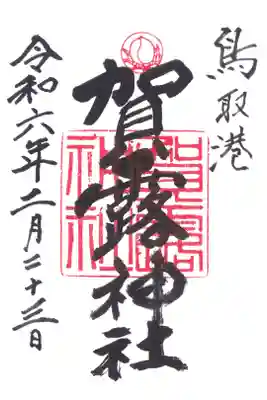 鳥取港
賀露神社
令和六年二月二十三日